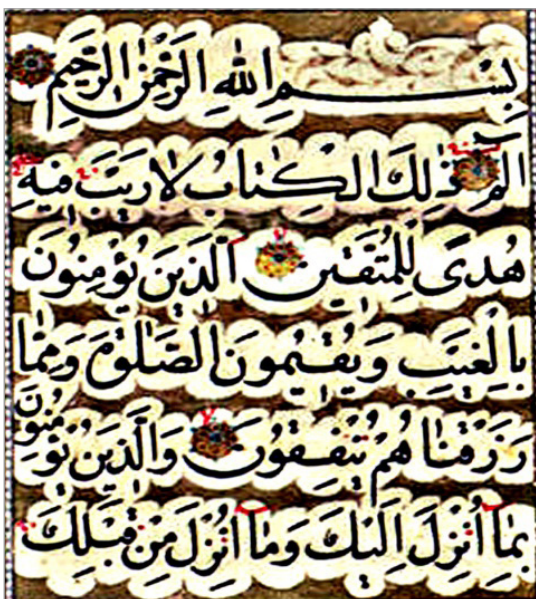 بِسْمِ اللهِ الرَّحْمٰنِ الرَّحِيمِ
الٓمٓ ذٰلِكَ الْكِتَابُ لَا رَيْبَ فِيهِ
هُدًى لِلْمُتَّقِينَ الَّذِينَ يُؤْمِنُونَ
بِالْغَيْبِ وَيُقِيمُونَ الصَّلٰوةَ وَمِمَّا
رَزَقْنَاهُمْ يُنْفِقُونَ وَالَّذِينَ يُؤْمِنُونَ
بِمَا اُنْزِلَ اِلَيْكَ وَمَا اُنْزِلَ مِنْ قَبْلِكَ